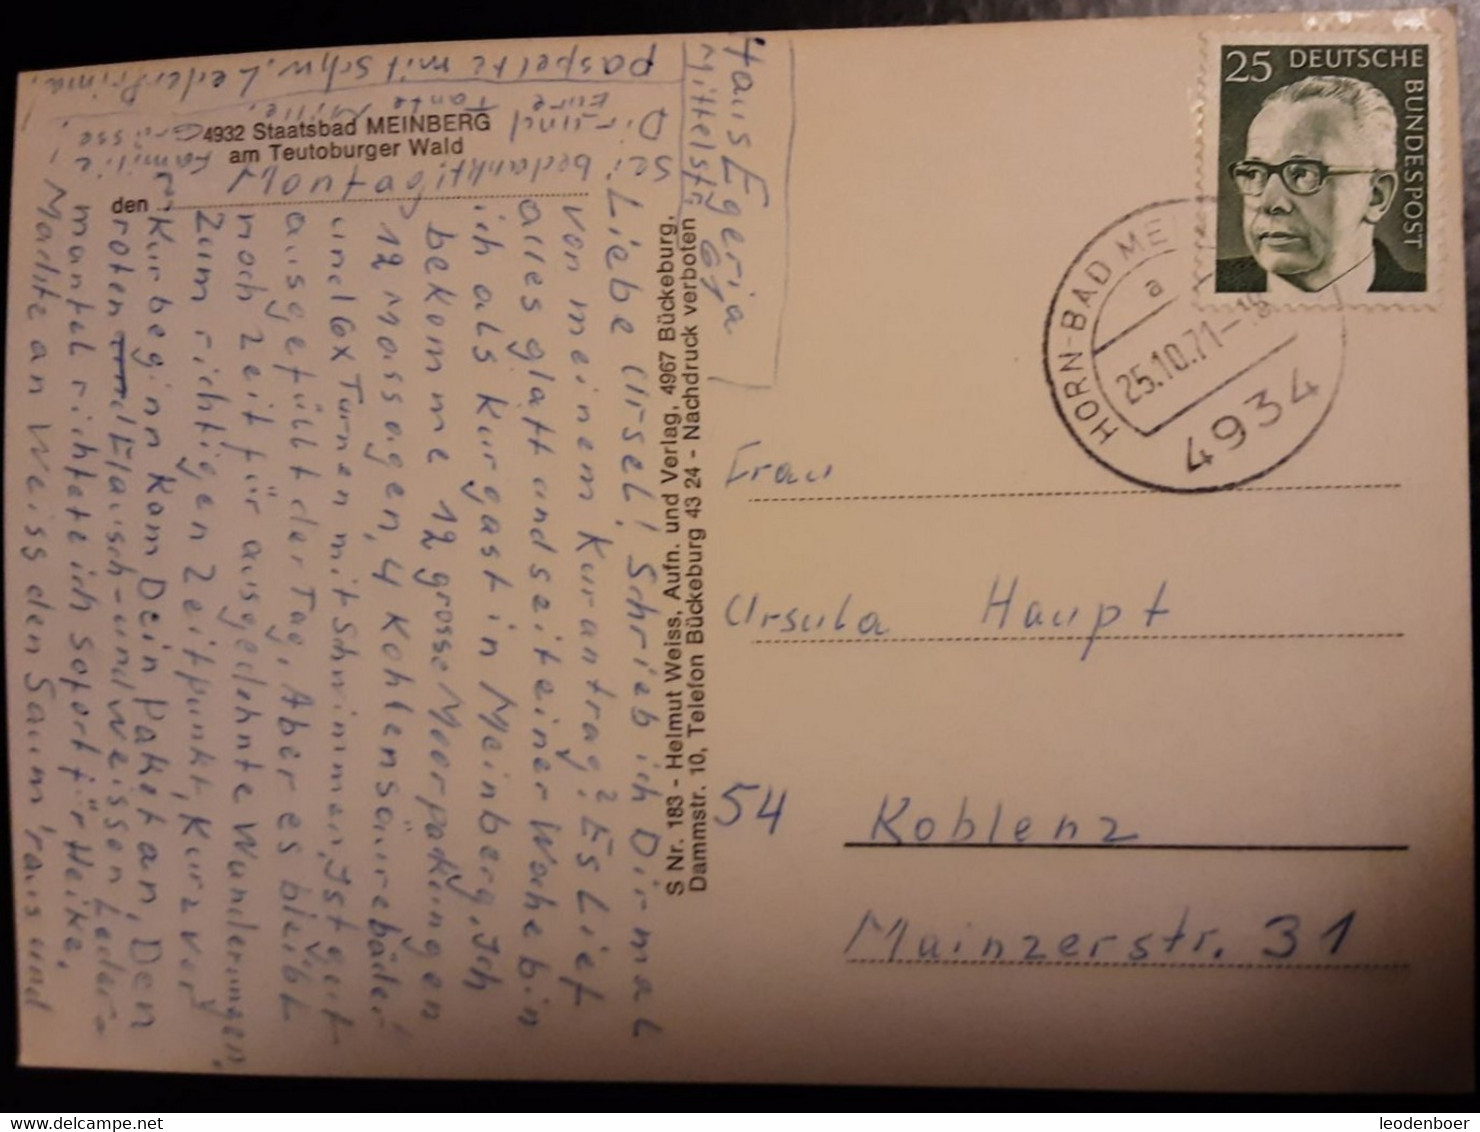 4932 Staatsbad MEINBERG
am Teutoburger Wald
den
Montag!
Liebe Ursel! Schrieb ich Dir mal
von meinem Kurantrag? Es lief
alles glatt und seit einer Woche bin
ich als Kurgast in Meinberg. Ich
bekomme 12 grosse Moorpackungen
12 Massagen, 4 Kohlensäurebäder
und 6x Turnen mit Schwimmen. Ist gut
ausgefüllt der Tag. Aber es bleibt
noch Zeit für ausgedehnte Wanderungen.
Zum richtigen Zeitpunkt, kurz vor
Kurbeginn kam Dein Paket an. Den
roten Flausch- und weissen Leder-
mantel richtete ich sofort für Heike.
Machte an weiss den Saum 'raus und
paspelte mit schw. Leder prima.
Sei bedankt!
Dir und Familie Grüsse,
Eure Tante
Haus Egeria
Mittelstr.
S Nr. 183 - Helmut Weiss, Aufn. und Verlag, 4967 Bückeburg,
Dammstr. 10, Telefon Bückeburg 43 24 - Nachdruck verboten
25 DEUTSCHE
BUNDESPOST
HORN-BAD MEI
a
25.10.71-18
4934
Frau
Ursula Haupt
54 Koblenz
Mainzerstr. 31
leodenboer